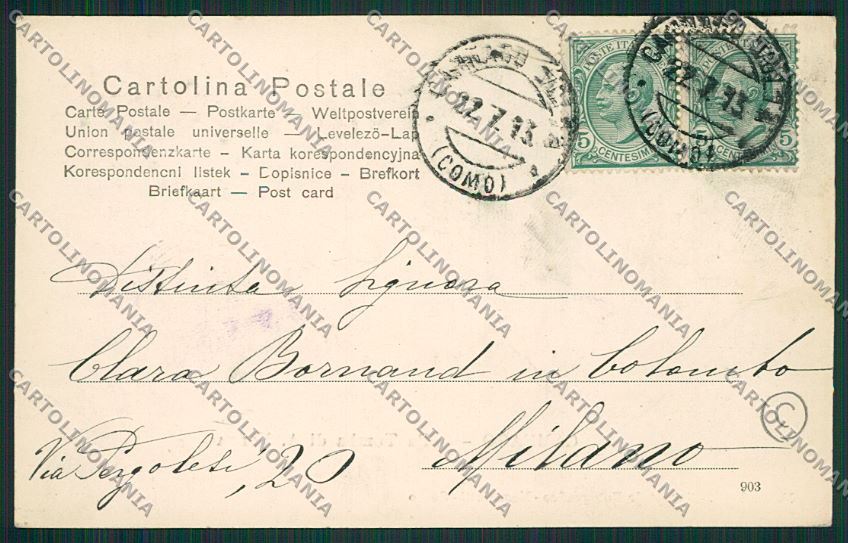 Cartolina Postale
Carte Postale — Postkarte — Weltpostverein
Union postale universelle — Levelezö-Lap
Correspondenzkarte — Karta korespondencyjna
Korespondencni listek — Dopisnice — Brefkort
Briefkaart — Post card
22.7.13
(COMO)
POSTE ITALIANE
5 CENTESIMI 5
22.7.13
(COMO)
CENTESIMI 5
Distinta Signora
Clara Bornand in Colombo
Milano
Via Pergolesi, 20
C
903
CARTOLINOMANIA